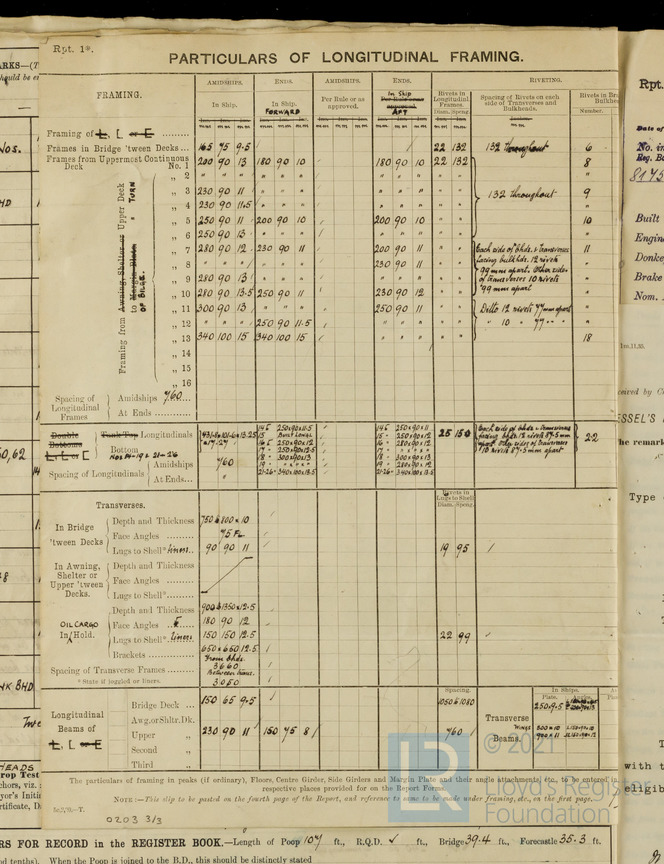 Rpt. 1*.
PARTICULARS OF LONGITUDINAL FRAMING.
FRAMING.
AMIDSHIPS. ENDS. AMIDSHIPS. ENDS. RIVETING.
In Ship. In Ship. FORWARD Per Rule or as approved. In Ship Per Rule or as approved. AFT Rivets in Longitudinal Frames. Spacing of Rivets on each side of Transverses and Bulkheads. Rivets in
Diam. Spcng. Number.
Framing of L, [ or E
Frames in Bridge 'tween Decks 165 75 9.5 22 132 132 throughout 6
Frames from Uppermost Continuous Deck No. 1 200 90 13 180 90 10 180 90 10 22 132 8
„ 2 " " " " " " " " "
„ 3 230 90 11 " " " " " " 132 throughout 9
„ 4 230 90 11.5 " " " " " "
„ 5 250 90 11 200 90 10 200 90 10 10
„ 6 250 90 13 " " " " " "
„ 7 280 90 12 230 90 11 200 90 11 11
„ 8 " " " " " " 230 90 11
„ 9 280 90 13 " " " " " "
„ 10 280 90 13.5 250 90 11 230 90 12
„ 11 300 90 13 " " " 250 90 11 Ditto 12 rivets 77mm apart
„ 12 " " " 250 90 11.5 " " " " 10 " 77
„ 13 340 100 15 340 100 15 " " " 18
„ 14
„ 15
„ 16
Each side of bhds. & transverses facing bulkhds. 12 rivets 99 mm apart. Other sides of transverses 10 rivets 99 mm apart
Framing from Awning, Shelter or Upper Deck to Margin Plate TURN OF BILGE.
Spacing of Longitudinal Frames
Amidships 760
At Ends
Double Bottoms L, [ or E
Tank Top Longitudinals
Bottom Nos 14-19 & 21-26
Spacing of Longitudinals
Amidships 760
At Ends "
14 250x90x11.5
16 250x90x12
17 250x90x12.5
18 300x90x13
21-26 340x100x13.5
14 250x90x11
15 250x90x12
16 280x90x12
18 300x90x13
19 280x90x12
21-26 340x100x13.5
25 150
Each side of bhds & transverses facing bhds. 12 rivets 87.5 mm apart. Other sides of transverses 10 rivets 87.5 mm apart
22
Transverses.
Rivets in Lugs to Shell
Diam. Spcng.
In Bridge 'tween Decks
Depth and Thickness 750 & 800 x 10
Face Angles 75 FL
Lugs to Shell* liners 90 90 11 19 95
In Awning, Shelter or Upper 'tween Decks.
Depth and Thickness
Face Angles
Lugs to Shell*
OIL CARGO In Hold.
Depth and Thickness 900 & 1350 x 12.5
Face Angles 180 90 12
Lugs to Shell* Liners 150 150 12.5 22 99
Brackets 650 x 650 12.5
Spacing of Transverse Frames
From bhds. 3660
Between trans. 3050
* State if joggled or liners.
Longitudinal Beams of L, [ or E
Spacing.
Bridge Deck 150 65 9.5 1050 & 1080
Awg. or Shltr. Dk.
Upper „ 230 90 11 150 75 8 760
Second „
Third „
Transverse Beams.
In Ships.
Plate. Angles.
WINGS
The particulars of framing in peaks (if ordinary), Floors, Centre Girder, Side Girders and Margin Plate and their angle attachments, etc., to be entered in
respective places provided for on the Report Form.
NOTE:—This slip to be posted on the fourth page of the Report, and reference to same to be made under framing, etc., on the first page.
0203 3/3
© 2021
LR
Lloyd's Register
Foundation
RS FOR RECORD in the REGISTER BOOK.—Length of Poop 107 ft., R.Q.D. ✓ ft., Bridge 39.4 ft., Forecastle 35.3 ft.
When the Poop is joined to the B.D., this should be distinctly stated
Rpt.
Date of
No. in
Reg. Bo
8175
Built
Engin
Donke
Brake
Nom.
ESSEL'S
he remark
Type
with t
eligib